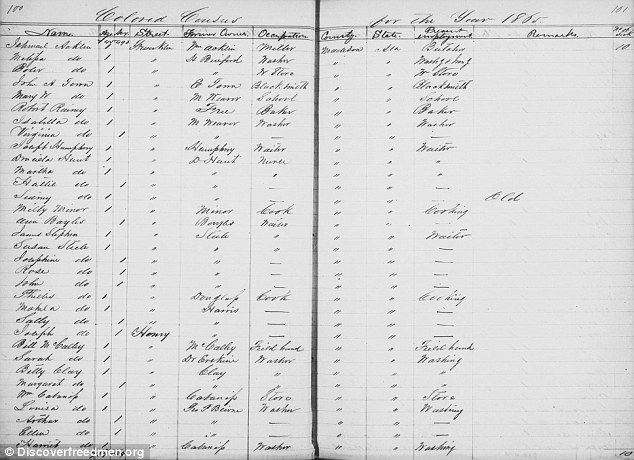 100 Colored Census for the Year 1865. 101
Name Age Sex Street Former Owner Occupation County State Present employment Remarks
Ishmael Acklin 1 Franklin Wm Acklin Miller Madison Ala Butcher 10
do 1 " Burford Washer " " Washing
Peter do 1 " " W Store " " W Store
John A Tonn 1 " E Tonn Blacksmith " " Blacksmith
Mary W do 1 " M Weaver School " " School
Robert 1 " Free Baker " " Baker
Isabella do 1 " M Weaver Washer " " Washer
Virginia do 1 " " — " " —
Joseph Humphry 1 " Humphry Waiter " " Waiter
Hunt 1 " D Hunt Nurse " "
Martha do 1 " " — " " —
Hattie do 1 " " — " " —
do 1 " " — " " — Old
Milly Minor 1 " Minor Cook " " Cooking
Ann 1 " Waiter " "
James Stephen 1 " Steele " " " Waiter
Susan Steele 1 " " " " "
Josephine do 1 " " — " " —
Rose do 1 " " — " " —
John do 1 " " — " " —
Phillis do 1 " Douglass Cook " " Cooking
do 1 " Harris — " " —
Sally do 1 " " — " " —
Joseph do 1 Henry " — " " —
Bill McCalley 1 " McCalley Field hand " " Field hand
Sarah do 1 " Dr Erskine Washer " " Washing
Betty Clay 1 " Clay " " " "
Margaret do 1 " " " "
Wm Cabaniss 1 " Cabaniss Store " " Store
Louisa do 1 " Beirne Washer " " Washing
Arthur do 1 " " — " " —
Ellen do 1 " " — " " —
Harriet do 1 " Cabaniss Washer " " Washing
10
© Discoverfreedmen.org